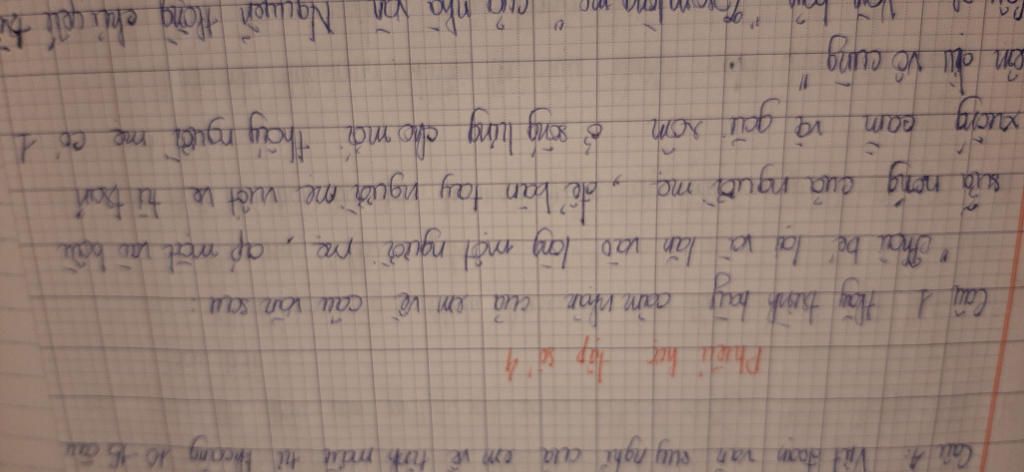 Câu 1: Viết đoạn văn suy nghĩ của em về tình mẫu tử khoảng 10-15 câu
Phiếu học tập số 4
Câu 1 Hãy trình bày cảm nhận của em về câu văn sau:
"Phải bé lại và lăn vào lòng một người mẹ, áp mặt vào bầu
sữa nóng của người mẹ, để bàn tay người mẹ vuốt ve từ trán
xuống cằm và gãi rôm ở sống lưng cho mới thấy người mẹ có 1
êm dịu vô cùng".
"Trong lòng mẹ" của nhà văn Nguyên Hồng